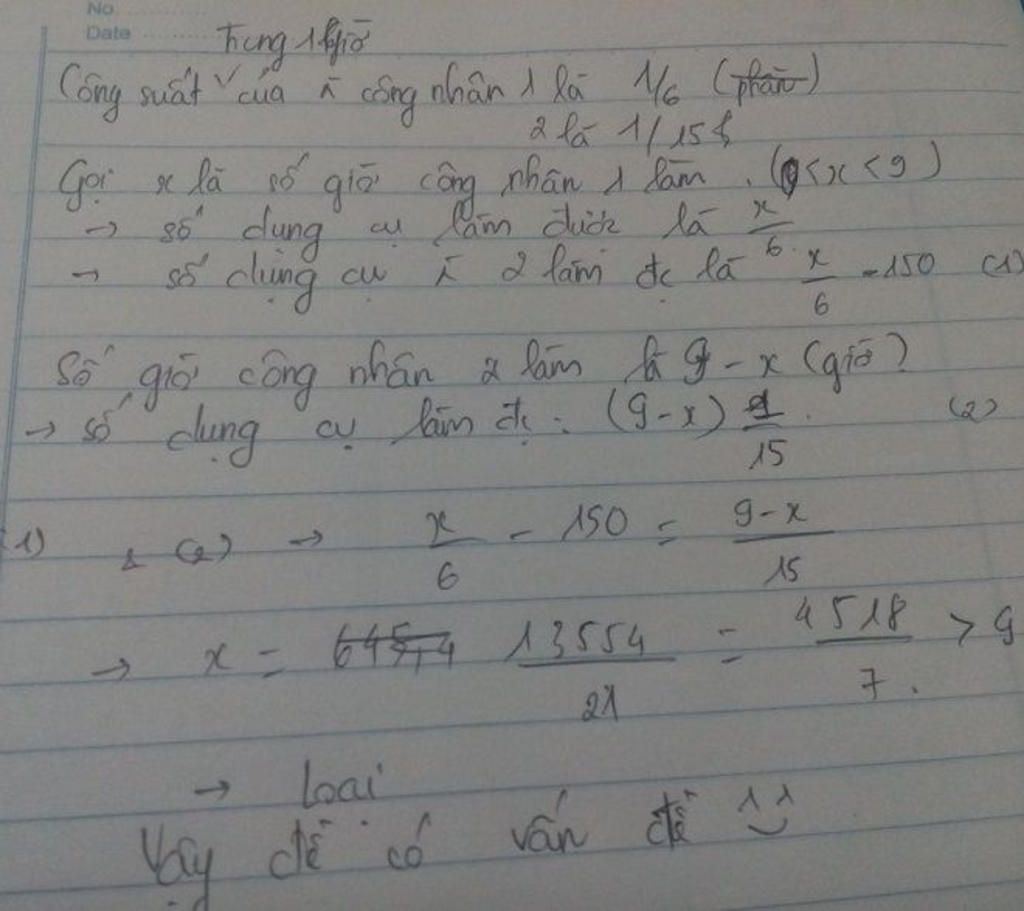 No
Date
Trong 1 giờ
Công suất của công nhân 1 là 1/6 (phần)
2 là 1/15
Gọi x là số giờ công nhân 1 làm. (0<x<9)
→ số dụng cụ làm được là x/6
→ số dụng cụ 2 làm đc là x/6 - 150 (1)
Số giờ công nhân 2 làm là 9-x (giờ)
→ số dụng cụ làm đc: (9-x) 1/15. (2)
(1) & (2) → x/6 - 150 = 9-x/15
→ x = 645,4 13554/21 = 4518/7. > 9
→ Loại
Vậy đề có vấn đề ^^